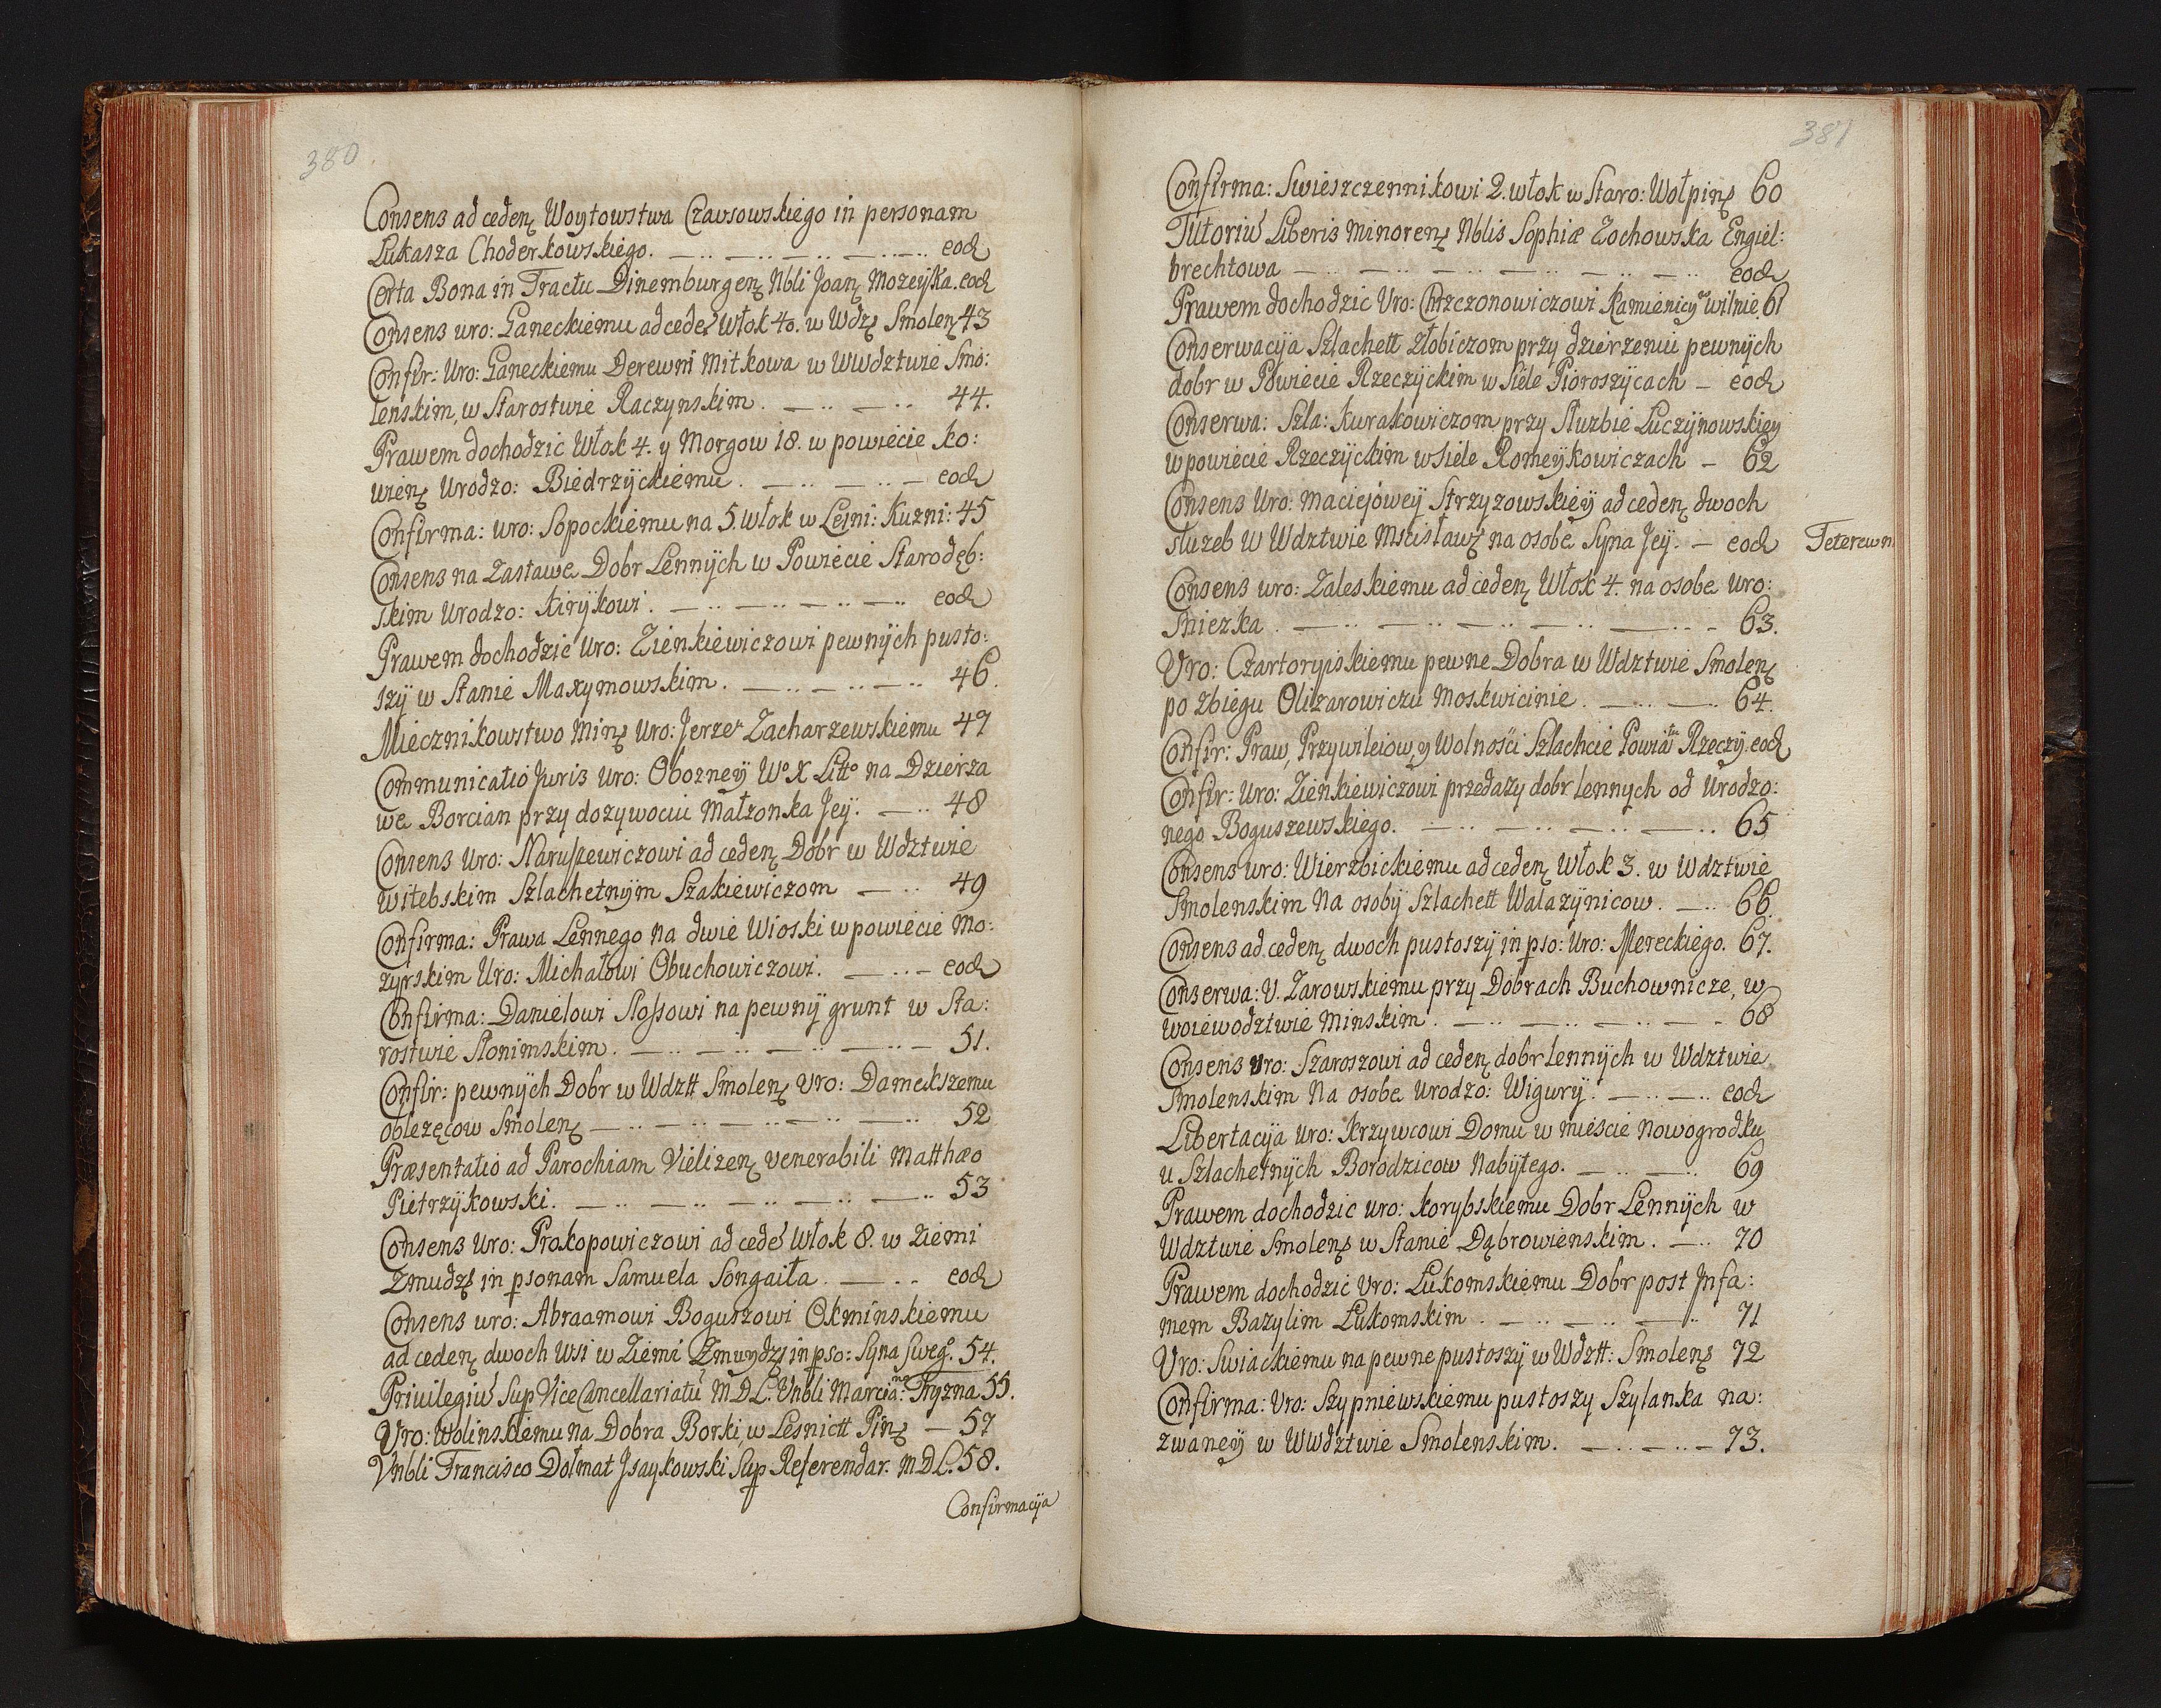 380.
Consens ad ceden̨ Woytowstwa Czausowskiego in personam
Lukasza Choderkowskiego. — .. — .. — .. — .. — .. eod
Certa Bona in Tractu Dinemburgen̨ Nbli Joan̨ Mozeyka. eod
Consens uro: Ganeckiemu ad cedeˀ Włok 40. w Wdz̨ Smolen̨ 43
Confir: Uro: Ganeckiemu Derewni Mitkowa w WWdztwie Smo:
lenskim, w Starostwie Raczynskim. — .. — .. 44.
Prawem dochodzic Włok 4. y Morgow 18. w powiecie Ko:
wien̨ Urodzo: Biedrzyckiemu. — .. — .. — eod
Confirma: uro: Sopockiemu na 5. włok w Leśni: Kuzni: 45
Consens na Zastawe Dobr Lennych w Powiecie Starodęb:
skim Urodzo: Kirykowi. — .. — .. — .. — .. eod
Prawem dochodzic Uro: Zienkiewiczowi pewnych pusto:
szy w Stanie Maxymowskim. — .. — .. — .. 46.
Miecznikowstwo Min̨ Uro: Jerzeᵘ Zacharzewskiemu 47
Communicatio Juris Uro: Obozney Wº X Littº na Dzierza
we Borcian przy dozywociu Małzonka Jey. — .. 48
Consens Uro: Naruszewiczowi ad ceden̨ Dobr w Wdztwie
Witebskim Szlachetnym Szakiewiczom — .. 49
Confirma: Prawa Lennego na dwie Wioski w powiecie Mo:
zyrskim Uro: Michałowi Obuchowiczowi. — .. — eod
Confirma: Danielowi Slossowi na pewny grunt w Sta:
rostwie Słonimskim. — .. — .. — .. — .. — 51.
Confir: pewnych Dobr w Wdztt Smolen̨ Uro: Dameckszemu
oblezęcow Smolen̨ — .. — .. — .. — .. — .. 52
Præsentatio ad Parochiam Vielizen̨ venerabili Matthæo
Pietrzykowski. — .. — .. — .. — .. — .. 53
Consens Uro: Prokopowiczowi ad cedeˀ Włok 8. w Ziemi
Zmudz̨ in psonam Samuela Songaiła. — .. eod
Consens uro: Abraamowi Boguszowi Okminskiemu
ad ceden̨ dwoch Wsi w Ziemi Zmuydz̨ in pso: Syna sweg̊. 54.
Priuilegiuˀ Sup Vice Cancellariatuˀ M D L. Vnbli Marcia:ⁿº Tryzna 55.
Uro: Wolinskiemu na Dobra Borki, w Lesnictt Pin̨ — 57
Vnbli Francisco Dołmat Jsaykowski Sup Referendar. M D L. 58.
Confirmacya
381
Confirma: Swieszczennikowi 2. włok w Staro: Wołpin̨ 60
Tutoriuˀ Liberis Minoren̨ Nblis Sophiæ Zochowska Engiel:
brechtowa — .. — .. — .. — .. — .. — .. eod
Prawem dochodzic Uro: Chrzczonowiczowi Kamienicy ʷ wilnie. 61
Conserwacya Szlachett Złobiczom przy dzierzeniu pewnych
dobr w Powiecie Rzeczyckim w Siele Pioroszycach — eod
Conserwa: Szla: Kurakowiczom przy Słuzbie Łuczynowskiey
w powiecie Rzeczyckim w siele Romeykowiczach — 62
Consens Uro: Maciejowey Strzyzowskiey ad ceden̨ dwoch
słuzeb w Wdztwie Mscisław̨ na osobe Syna Jey. — eod
Teterewn
Consens uro: Zaleskiemu ad ceden̨ Włok 4. na osobe uro:
Sniezka. — .. — .. — .. — .. — .. — 63.
Uro: Czartoryiskiemu pewne Dobra w Wdztwie Smolen̨
po zbiegu Olizarowiczu Moskwicinie. — .. — .. 64.
Confir: Praw, Przywileiow, y Wolności Szlachcie Powiaᵗᵘ Rzeczy. eod
Confir: Uro: Zienkiewiczowi przedazy dobr lennych od Urodzo:
nego Boguszewskiego. — .. — .. — .. — .. 65
Consens uro: Wierzbickiemu ad ceden̨ Włok 3. w Wdztwie
Smolenskim Na osoby Szlachett Walazynicow. — .. 66.
Consens ad ceden̨ dwoch pustoszy in pso: Uro: Mereckiego. 67.
Conserwa: U. Zarowskiemu przy Dobrach Buchownicze, w
woiewodztwie Minskim. — .. — .. — .. — 68
Consens Uro: Szaroszowi ad ceden̨ dobr lennych w Wdztwie
Smolenskim Na osobe Urodzo: Wigury. — .. — .. eod
Libertacya Uro: Krzywcowi Domu w mieście Nowogrodku
u Szlachetnych Borodzicow Nabytego. — .. — .. 69
Prawem dochodzic uro: Korybskiemu Dobr Lennych w
Wdztwie Smolen̨ w Stanie Dąbrowienskim. — .. 70
Prawem dochodzic Uro: Łukomskiemu Dobr post Jnfa:
mem Bazylim Łukomskim. — .. — .. — .. 71
Uro: Swiackiemu na pewne pustoszy w Wdztt: Smolen̨ 72
Confirma: Uro: Szypniewskiemu pustoszy Szylanka na:
zwaney w WWdztwie Smolenskim. — .. — .. — 73.